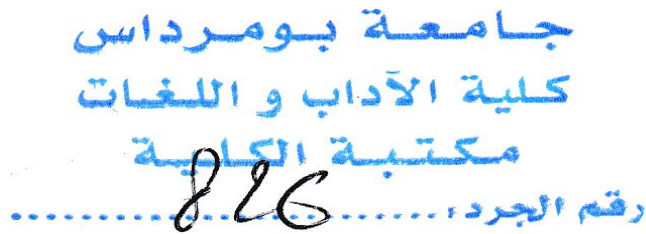 جامعة بومرداس
كلية الآداب و اللغات
مكتبة الكلية
رقم الجرد: ........826........